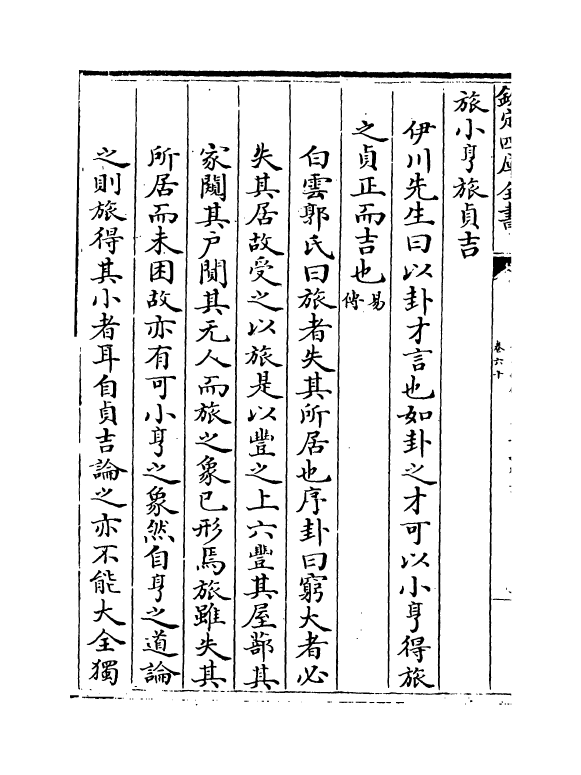 欽定四庫全書
卷六十
旅小亨旅貞吉
伊川先生曰以卦才言也如卦之才可以小亨得旅
之貞正而吉也易傳
白雲郭氏曰旅者失其所居也序卦曰窮大者必
失其居故受之以旅是以豐之上六豐其屋蔀其
家闚其户闃其无人而旅之象已形焉旅雖失其
所居而未困故亦有可小亨之象然自亨之道論
之則旅得其小者耳自貞吉論之亦不能大全獨